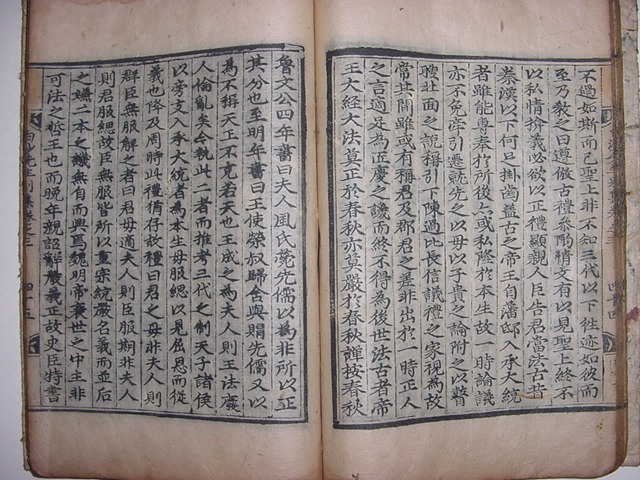 不過如斯而已聖上非不知三代以下往迹如彼而
至乃敎之曰遵倣古禮參酌精文有以見聖上終不
以私情揜義必欲以正禮顯親人臣告君當法
秦漢以下何足掛齒盖古之帝王自藩邸入承大統
者雖能專奉於所後亦或私隆於本生故一時論議
亦不免牽引遷就先之以母以子貴之論附之以瞽
瞍北面之說稱引下陳過比長信議禮之家視爲故
常其間雖或有稱君及郡君之差非出於一時正人
之言適足爲正禮之譏而終不得爲後世法古者帝
王大經大法莫正於春秋亦莫嚴於春秋謹按春秋
魯文公四年書曰夫人風氏薨先儒以爲非所以正
其分也至明年書曰王使榮叔歸含與賵先儒又以
爲不稱天王不克若天也王成之爲夫人則王法廢
人倫亂矣今執此二者而推考三代之制天子諸侯
以旁支入承大統者爲本生母服緦以見屈恩而從
義也降及周時此禮猶存故禮曰君之母非夫人則
群臣無服解之者曰君母適夫人則臣服期非夫人
則君服緦故臣無服皆所以重宗統嚴名義而並后
之嫌二本之譏無自而興焉魏明帝衰世之中主非
可法之哲王也而晩年親詔嚴義正故史臣特書